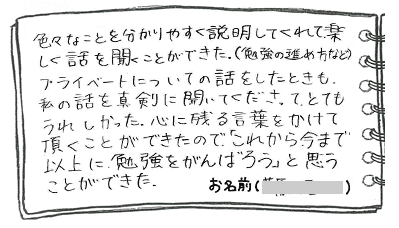 色々なことを分かりやすく説明してくれて楽
しく話を聞くことができた。(勉強の進め方など)
プライベートについての話をしたときも、
私の話を真剣に聞いてくださって、とても
うれしかった。心に残る言葉をかけて
頂くことができたので「これから今まで
以上に勉強をがんばろう」と思う
ことができた。
お名前(
)